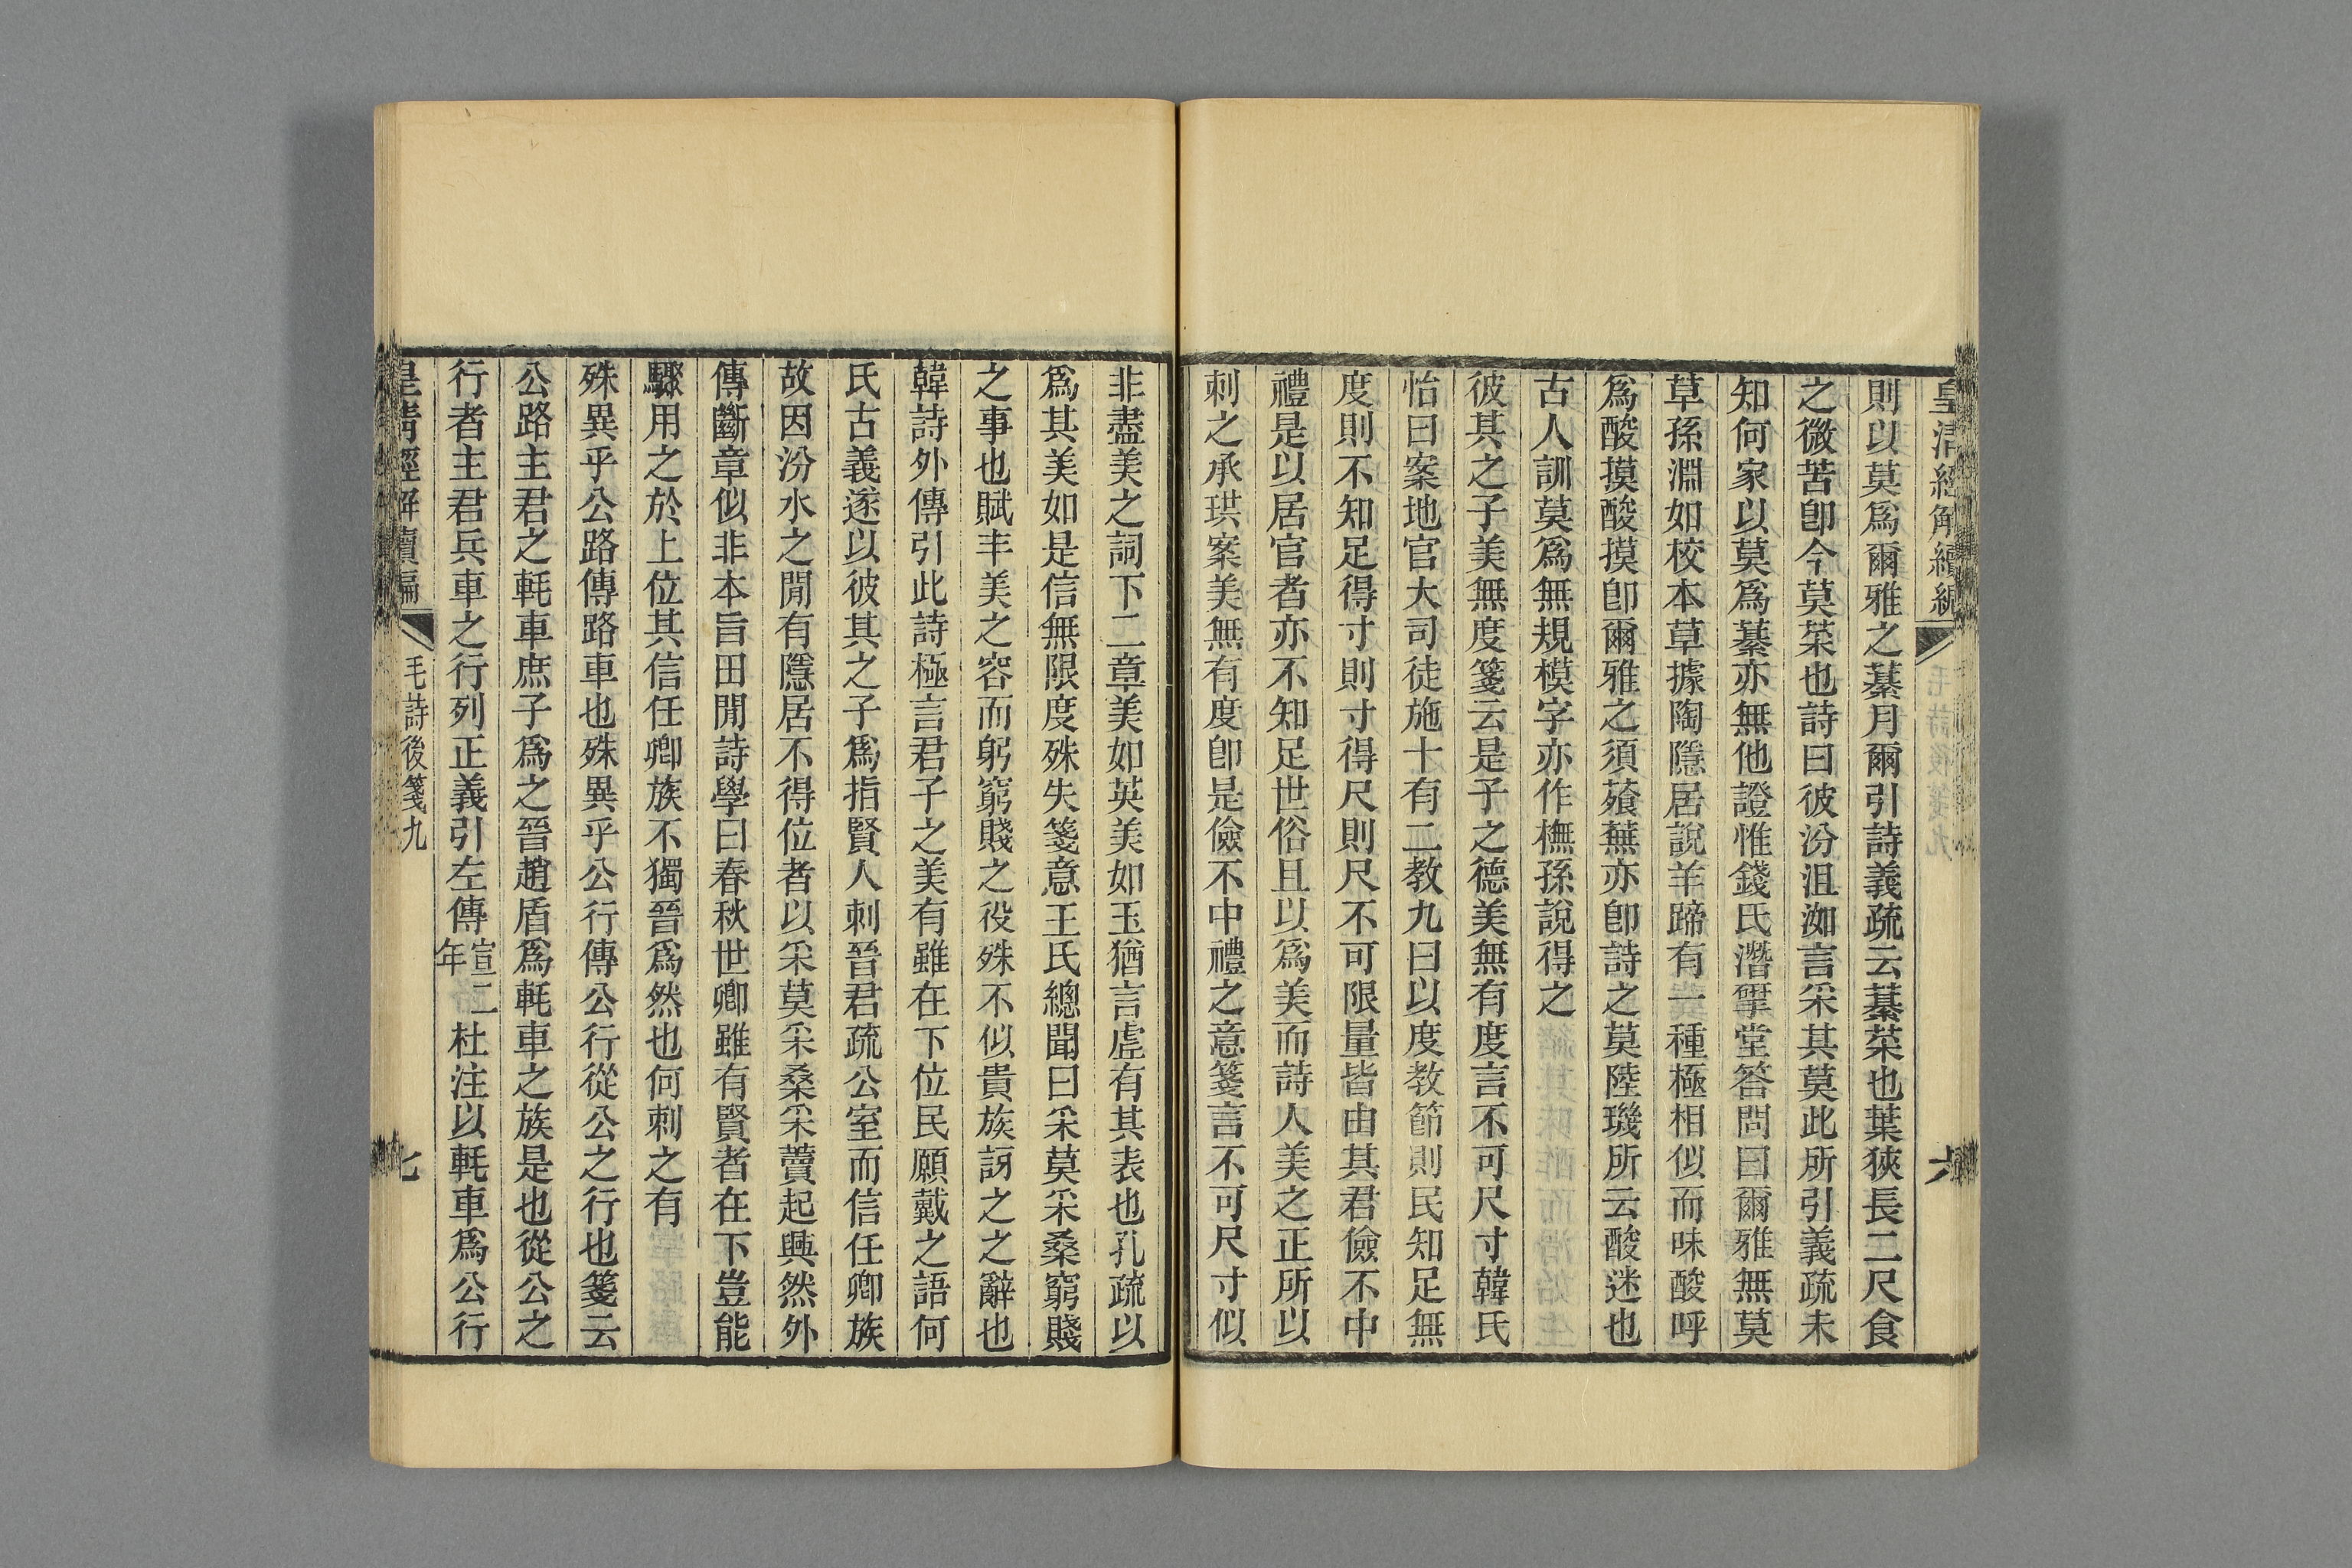 皇清經解續編
六
則以莫爲爾雅之藄月爾引詩義疏云藄菜也葉狹長二尺食
之微苦卽今莫菜也詩曰彼汾沮洳言采其莫此所引義疏未
知何家以莫爲藄亦無他證惟錢氏潛揅堂答問曰爾雅無莫
草孫淵如校本草據陶隱居說羊蹄有一種極相似而味酸呼
爲酸摸酸摸卽爾雅之須薞蕪亦卽詩之莫陸璣所云酸迷也
古人訓莫爲無規模字亦作橅孫說得之
彼其之子美無度箋云是子之德美無有度言不可尺寸韓氏
怡曰案地官大司徒施十有二教九曰以度教節則民知足無
度則不知足得寸則寸得尺則尺不可限量皆由其君儉不中
禮是以居官者亦不知足世俗且以爲美而詩人美之正所以
刺之承珙案美無有度卽是儉不中禮之意箋言不可尺寸似
非盡美之詞下二章美如英美如玉猶言虛有其表也孔疏以
爲其美如是信無限度殊失箋意王氏總聞曰采莫采桑窮賤
之事也賦丰美之容而躬窮賤之役殊不似貴族訝之之辭也
韓詩外傳引此詩極言君子之美有雖在下位民願戴之語何
氏古義遂以彼其之子爲指賢人刺晉君疏公室而信任卿族
故因汾水之閒有隱居不得位者以采莫采桑采藚起興然外
傳斷章似非本旨田閒詩學曰春秋世卿雖有賢者在下豈能
驟用之於上位其信任卿族不獨晉爲然也何刺之有
殊異乎公路傳路車也殊異乎公行傳公行從公之行也箋云
公路主君之軞車庶子爲之晉趙盾爲軞車之族是也從公之
行者主君兵車之行列正義引左傳宣二年杜注以軞車爲公行
皇清經解續編
毛詩後箋九
七